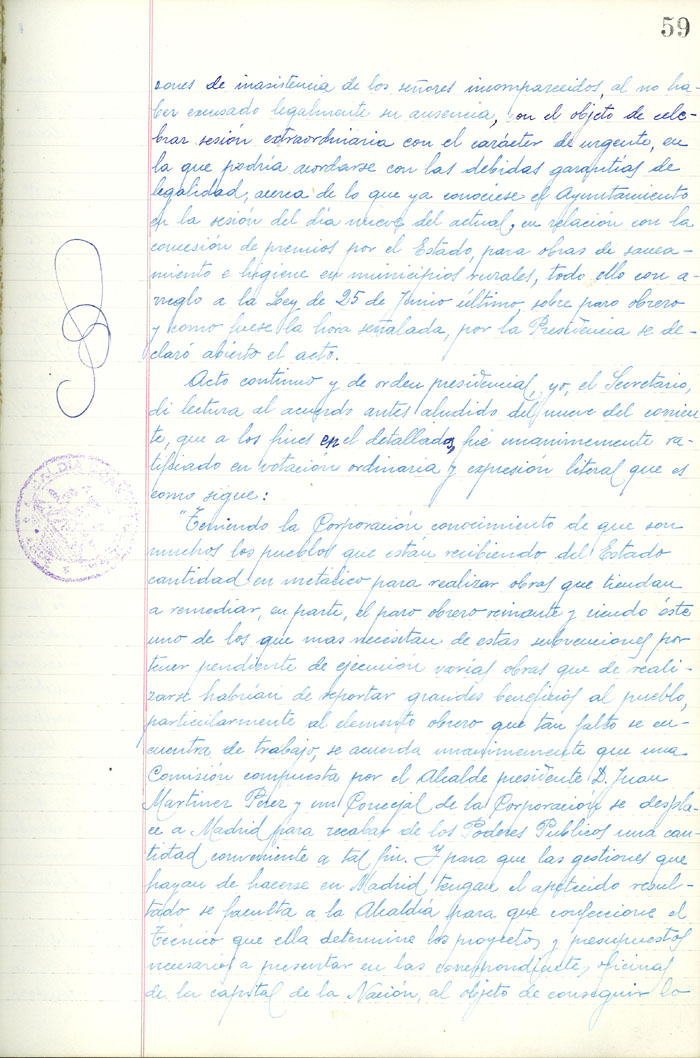 59
zones de inasistencia de los señores incomparecidos, al no ha-
ber excusado legalmente su ausencia, con el objeto de cele-
brar sesión extraordinaria con el carácter de urgente, en
la que podría acordarse con las debidas garantías de
legalidad, acerca de lo que ya conociese el Ayuntamiento
en la sesión del día nueve del actual, en relación con la
concesión de premios por el Estado, para obras de sanea-
miento e higiene en municipios rurales, todo ello con a-
rreglo a la Ley de 25 de Junio último, sobre paro obrero
y como fuese la hora señalada, por la Presidencia se de-
claró abierto el acto.
Acto continuo y de orden presidencial, yo, el Secretario,
di lectura al acuerdo antes aludido del nueve del corrien-
te, que a los fines en el detallados, fué unanimemente ra-
tificado en votación ordinaria y expresión literal que es
como sigue:
"Teniendo la Corporación conocimiento de que son
muchos los pueblos que están recibiendo del Estado
cantidad en metálico para realizar obras que tiendan
a remediar, en parte, el paro obrero reinante y siendo éste
uno de los que mas necesitan de estas subvenciones por
tener pendiente de ejecución varias obras que de reali-
zarse habrían de reportar grandes beneficios al pueblo,
particularmente al elemento obrero que tan falto se en-
cuentra de trabajo, se acuerda unanimemente que una
Comisión compuesta por el Alcalde presidente D. Juan
Martinez Pérez y un Concejal de la Corporación se despla-
ce a Madrid para recabar de los Poderes Publicos una can-
tidad conveniente a tal fin. Y para que las gestiones que
hayan de hacerse en Madrid, tengan el apetecido resul-
tado se faculta a la Alcaldía para que confeccione el
Técnico que ella determine los proyectos y presupuestos
necesarios a presentar en las correspondientes oficinas
de la capital de la Nación, al objeto de conseguir lo